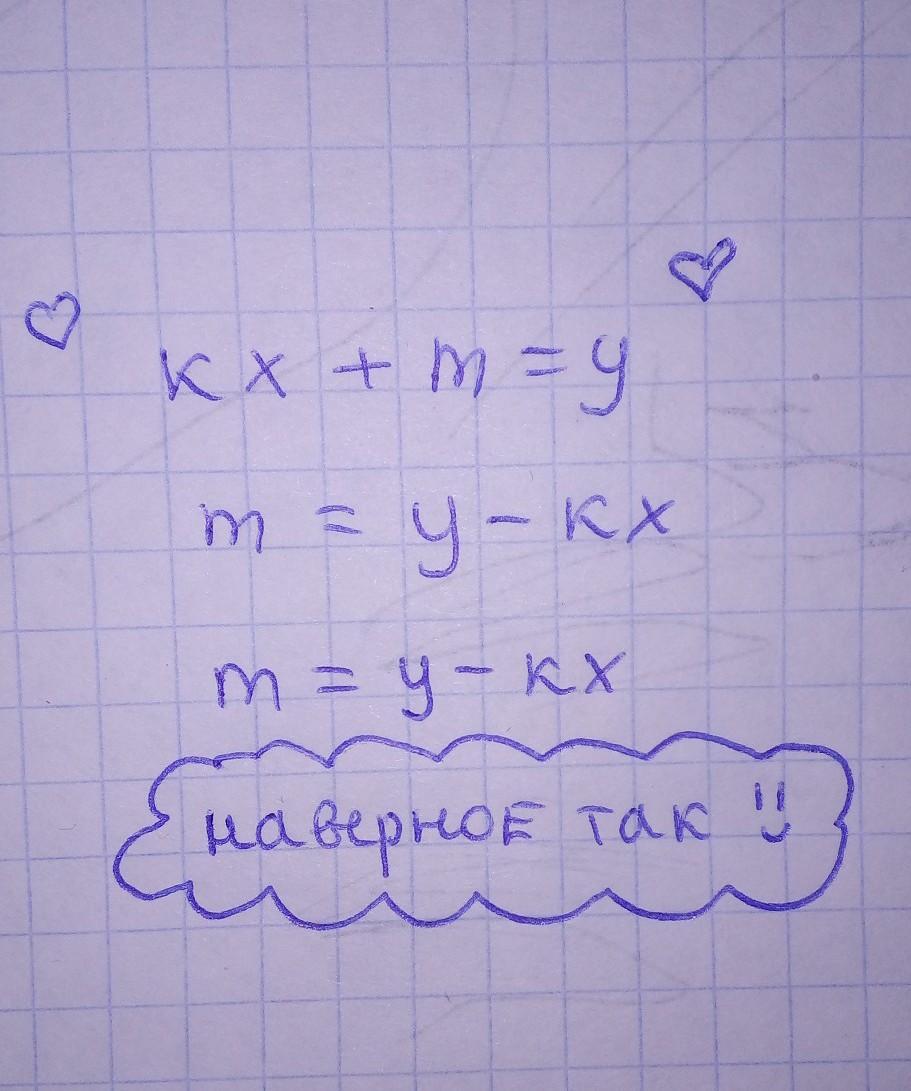 кx + m = y
m = y - кx
m = y - кx
наверное так !!